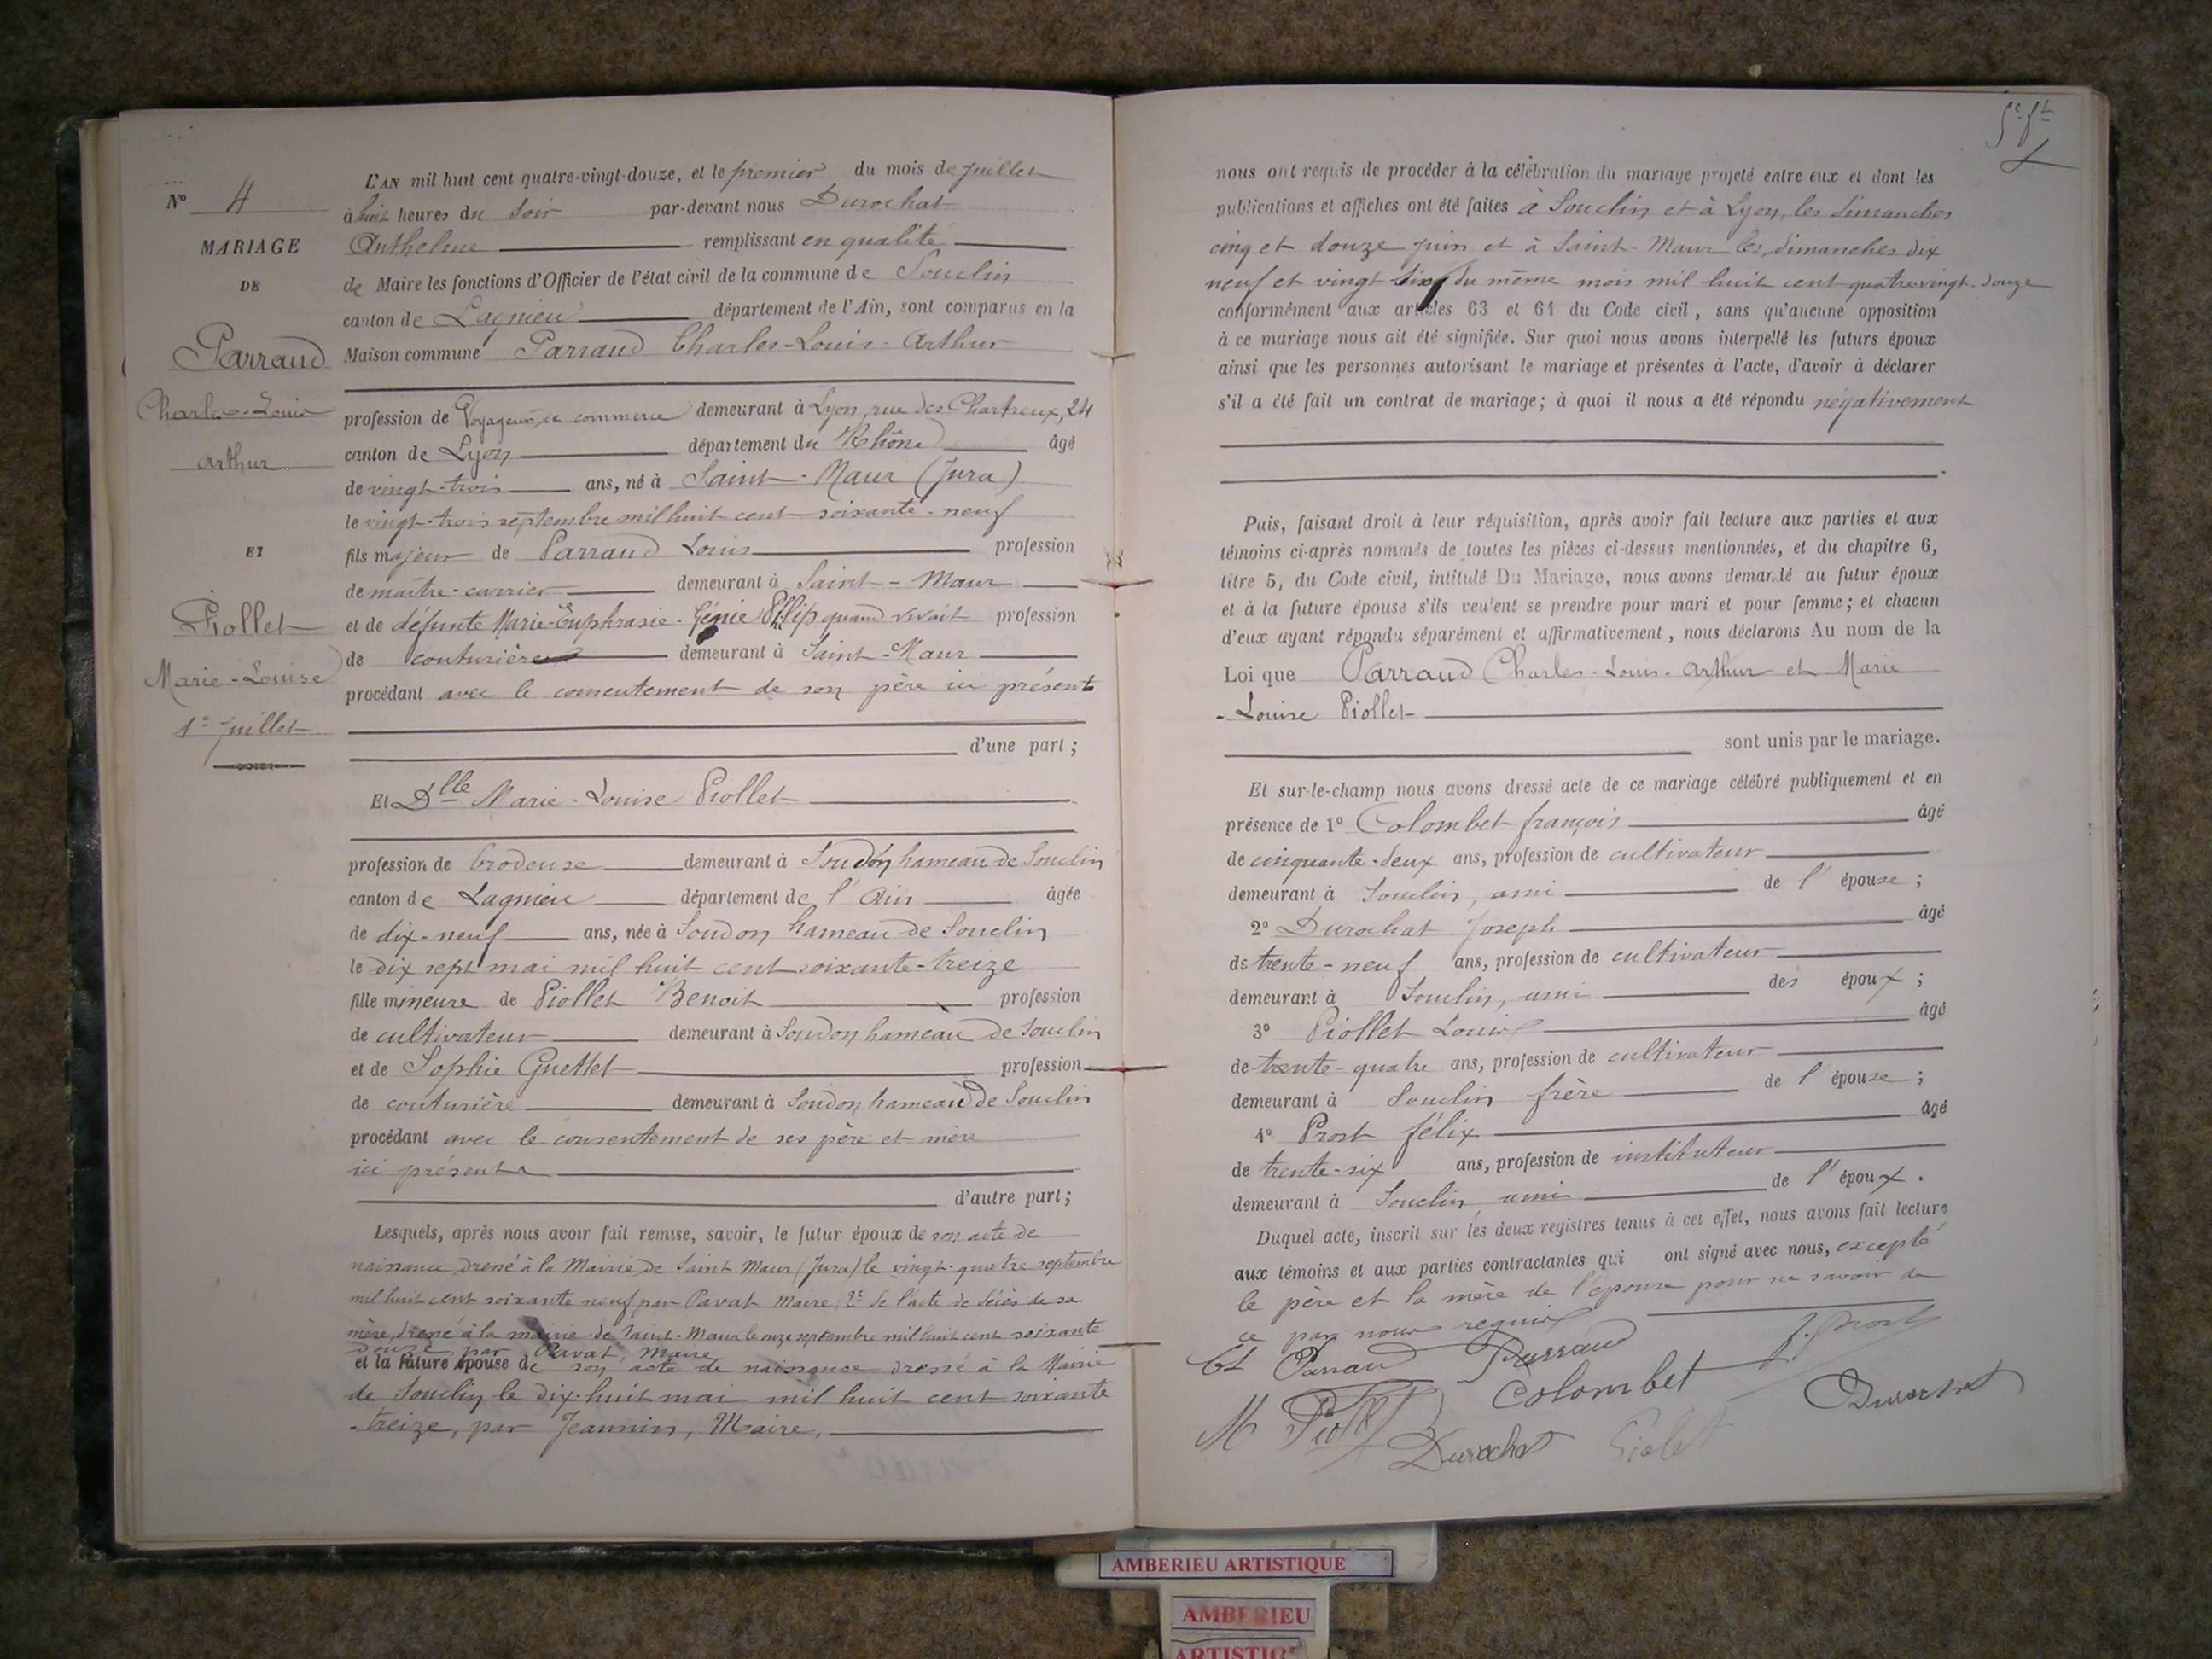 N° 4
MARIAGE
DE
Parraud
Charles-Louis
Arthur
ET
Piollet
Marie-Louise
1er juillet
L'AN mil huit cent quatre-vingt-douze, et le premier du mois de juillet
à huit heures du soir par-devant nous Durochat
Anthelme remplissant en qualité
de Maire les fonctions d'Officier de l'état civil de la commune de Souclin
canton de Lagnieu département de l'Ain, sont comparus en la
Maison commune Parraud Charles-Louis-Arthur
profession de Voyageur de commerce demeurant à Lyon, rue des Chartreux, 24
canton de Lyon département du Rhône âgé
de vingt-trois ans, né à Saint-Maur (Jura)
le vingt-trois septembre mil huit cent soixante-neuf
fils majeur de Parraud Louis profession
de maître-carrier demeurant à Saint-Maur
et de défunte Marie-Euphrasie-Génie quand vivait profession
de couturière demeurant à Saint-Maur
procédant avec le consentement de son père ici présent
d'une part ;
Et Dlle Marie-Louise Piollet
profession de brodeuse demeurant à Soudon hameau de Souclin
canton de Lagnieu département de l'Ain âgée
de dix-neuf ans, née à Soudon hameau de Souclin
le dix sept mai mil huit cent soixante-treize
fille mineure de Piollet Benoit profession
de cultivateur demeurant à Soudon hameau de Souclin
et de Sophie Guettet profession
de couturière demeurant à Soudon hameau de Souclin
procédant avec le consentement de ses père et mère
ici présents
d'autre part ;
Lesquels, après nous avoir fait remise, savoir, le futur époux de son acte de
naissance dressé à la Mairie de Saint Maur (Jura) le vingt-quatre septembre
mil huit cent soixante neuf par Pavat Maire; 2° de l'acte de décès de sa
mère, dressé à la mairie de Saint-Maur le onze septembre mil huit cent soixante
douze, par Pavat, Maire
et la future épouse de son acte de naissance dressé à la Mairie
de Souclin le dix-huit mai mil huit cent soixante
-treize, par Jeannin, Maire.
nous ont requis de procéder à la célébration du mariage projeté entre eux et dont les
publications et affiches ont été faites à Souclin et à Lyon, les dimanches
cinq et douze juin et à Saint-Maur les dimanches dix
neuf et vingt six du même mois mil huit cent quatrevingt-douze
conformément aux articles 63 et 64 du Code civil, sans qu'aucune opposition
à ce mariage nous ait été signifiée. Sur quoi nous avons interpellé les futurs époux
ainsi que les personnes autorisant le mariage et présentes à l'acte, d'avoir à déclarer
s'il a été fait un contrat de mariage; à quoi il nous a été répondu négativement
Puis, faisant droit à leur réquisition, après avoir fait lecture aux parties et aux
témoins ci-après nommés de toutes les pièces ci-dessus mentionnées, et du chapitre 6,
titre 5, du Code civil, intitulé Du Mariage, nous avons demandé au futur époux
et à la future épouse s'ils veulent se prendre pour mari et pour femme; et chacun
d'eux ayant répondu séparément et affirmativement, nous déclarons Au nom de la
Loi que Parraud Charles-Louis-Arthur et Marie
-Louise Piollet
sont unis par le mariage.
Et sur-le-champ nous avons dressé acte de ce mariage célébré publiquement et en
présence de 1° Colombet françois âgé
de cinquante-deux ans, profession de cultivateur
demeurant à Souclin, ami de l'épouse ;
2° Durochat Joseph âgé
de trente-neuf ans, profession de cultivateur
demeurant à Souclin, ami des époux ;
3° Piollet Louis âgé
de trente-quatre ans, profession de cultivateur
demeurant à Souclin frère de l'épouse ;
4° Prost félix âgé
de trente-six ans, profession de instituteur
demeurant à Souclin, ami de l'époux.
Duquel acte, inscrit sur les deux registres tenus à cet effet, nous avons fait lecture
aux témoins et aux parties contractantes qui ont signé avec nous, excepté
le père et la mère de l'épouse pour ne savoir de
ce par nous requis
Parraud Parraud f. Prost
M Piollet Colombet Durochat
Durochat Piolet
AMBERIEU ARTISTIQUE
AMBERIEU
ARTISTIQ